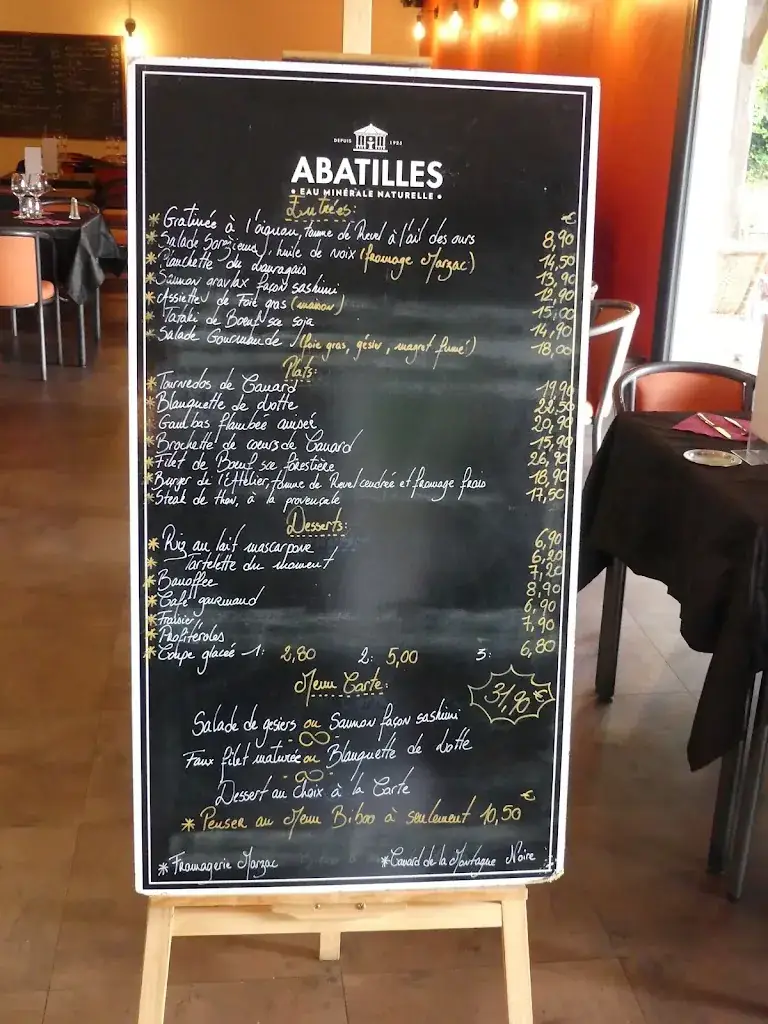 DEPUIS 1925
ABATILLES
• EAU MINÉRALE NATURELLE •
Entrées: €
* Gratinée à l'oignon, tomme de Revel à l'ail des ours 8,90
* Salade , huile de noix (fromage Marzac) 14,50
* Planchette du 13,90
* Saumon gravlax façon sashimi 12,90
* Assiette de Foie gras (maison) 15,00
* Tataki de Boeuf sce soja 14,90
* Salade Gourmande (foie gras, gésier, magret fumé) 18,00
Plats:
* Tournedos de Canard 19,90
* Blanquette de Lotte 22,50
* Gambas flambée anisée 20,90
* Brochette de coeurs de Canard 15,90
* Filet de Boeuf sce forestière 26,90
* Burger de l'Atelier, tomme de Revel cendrée et fromage frais 18,90
* Steak de thon, à la provençale 17,50
Desserts:
* Riz au lait mascarpone 6,90
* Tartelette du moment 6,20
* Banoffee 7,20
* Café gourmand 8,90
* Fraisier 6,90
* Profiteroles 7,90
* Coupe glacée 1: 2,80 2: 5,00 3: 6,80
Menu Carte: 31,90 €
Salade de gesiers ou Saumon façon sashimi
Faux filet maturée ou Blanquette de Lotte
Dessert au Choix à la Carte
* Penser au Menu Biboo à seulement 10,50 €
* Fromagerie Marzac *Canard de la Montagne Noire